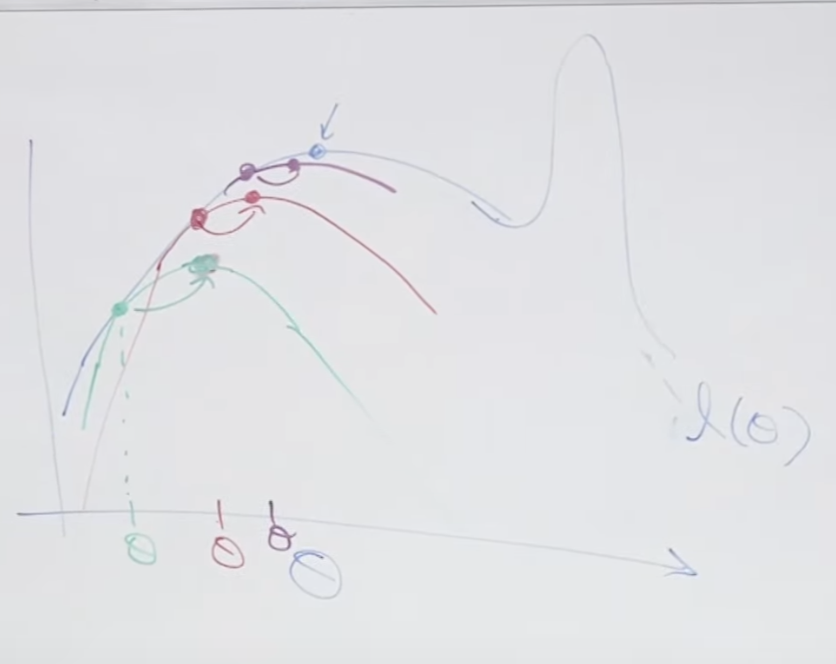 l(θ)
θ θ θ
Θ